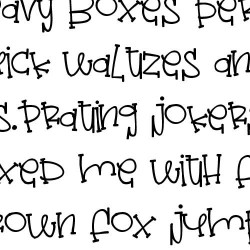 avy boxes per
rick waltzes an
s.prating joker
ixed me with f
rown fox jump